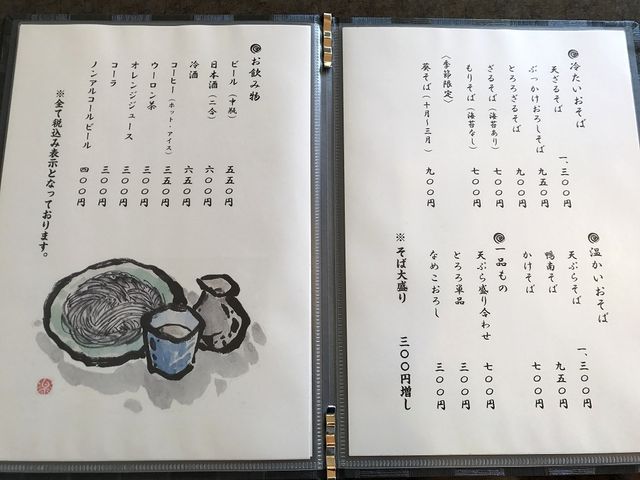 冷たいおそば
天ざるそば 一、三〇〇円
ぶっかけおろしそば 九五〇円
とろろざるそば 九〇〇円
ざるそば（海苔あり） 七〇〇円
もりそば（海苔なし） 七〇〇円
（季節限定）
葵そば（十月～三月） 九〇〇円
温かいおそば
天ぷらそば 一、三〇〇円
鴨南そば 九五〇円
かけそば 七〇〇円
一品もの
天ぷら盛り合わせ 七〇〇円
とろろ単品 三〇〇円
なめこおろし 三〇〇円
※そば大盛り 三〇〇円増し
お飲み物
ビール（中瓶） 五五〇円
日本酒（二合） 六〇〇円
冷酒 六五〇円
コーヒー（ホット・アイス） 三五〇円
ウーロン茶 三〇〇円
オレンジジュース 三〇〇円
コーラ 三〇〇円
ノンアルコールビール 四〇〇円
※全て税込み表示となっております。